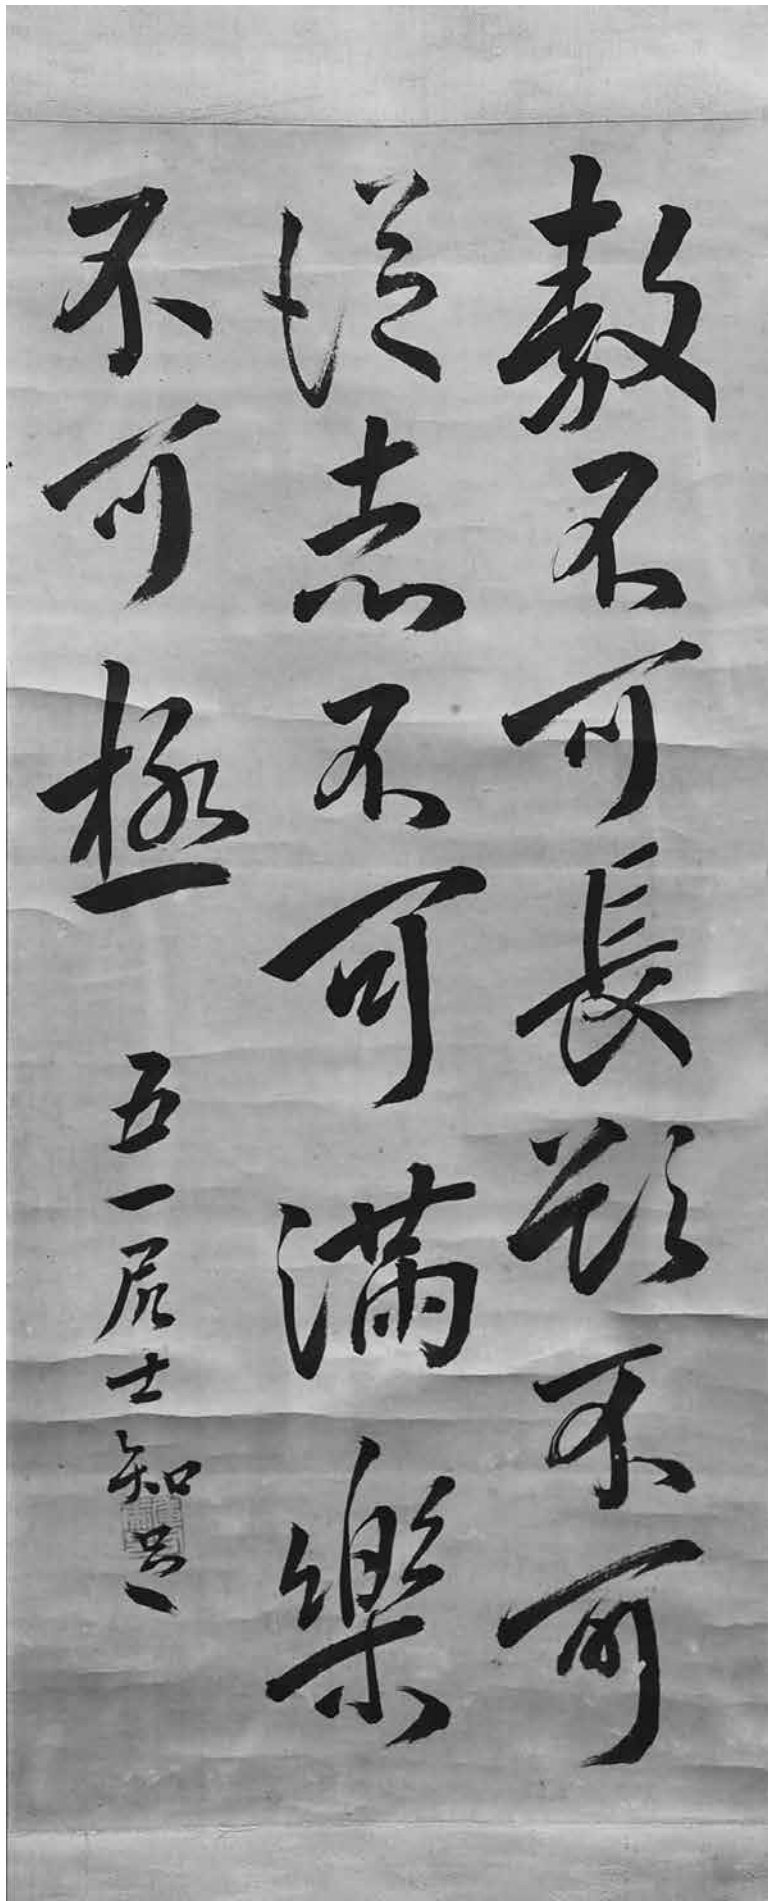 敖不可長欲不可
従志不可滿樂
不可極 五一居士知足